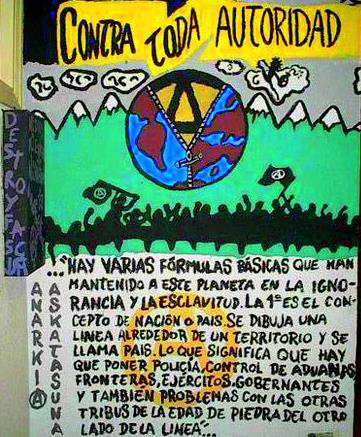 CONTRA TODA AUTORIDAD
..."HAY VARIAS FÓRMULAS BÁSICAS QUE HAN
MANTENIDO A ESTE PLANETA EN LA IGNO-
RANCIA Y LA ESCLAVITUD. LA 1ª ES EL CON-
CEPTO DE NACIÓN O PAIS. SE DIBUJA UNA
LINEA ALREDEDOR DE UN TERRITORIO Y SE
LLAMA PAIS. LO QUE SIGNIFICA QUE HAY
QUE PONER POLICÍA, CONTROL DE ADUANAS
FRONTERAS, EJÉRCITOS, GOBERNANTES
Y TAMBIÉN PROBLEMAS CON LAS OTRAS
TRIBUS DE LA EDAD DE PIEDRA DEL OTRO
LADO DE LA LINEA"...
ANARKIA
ASKATASUNA